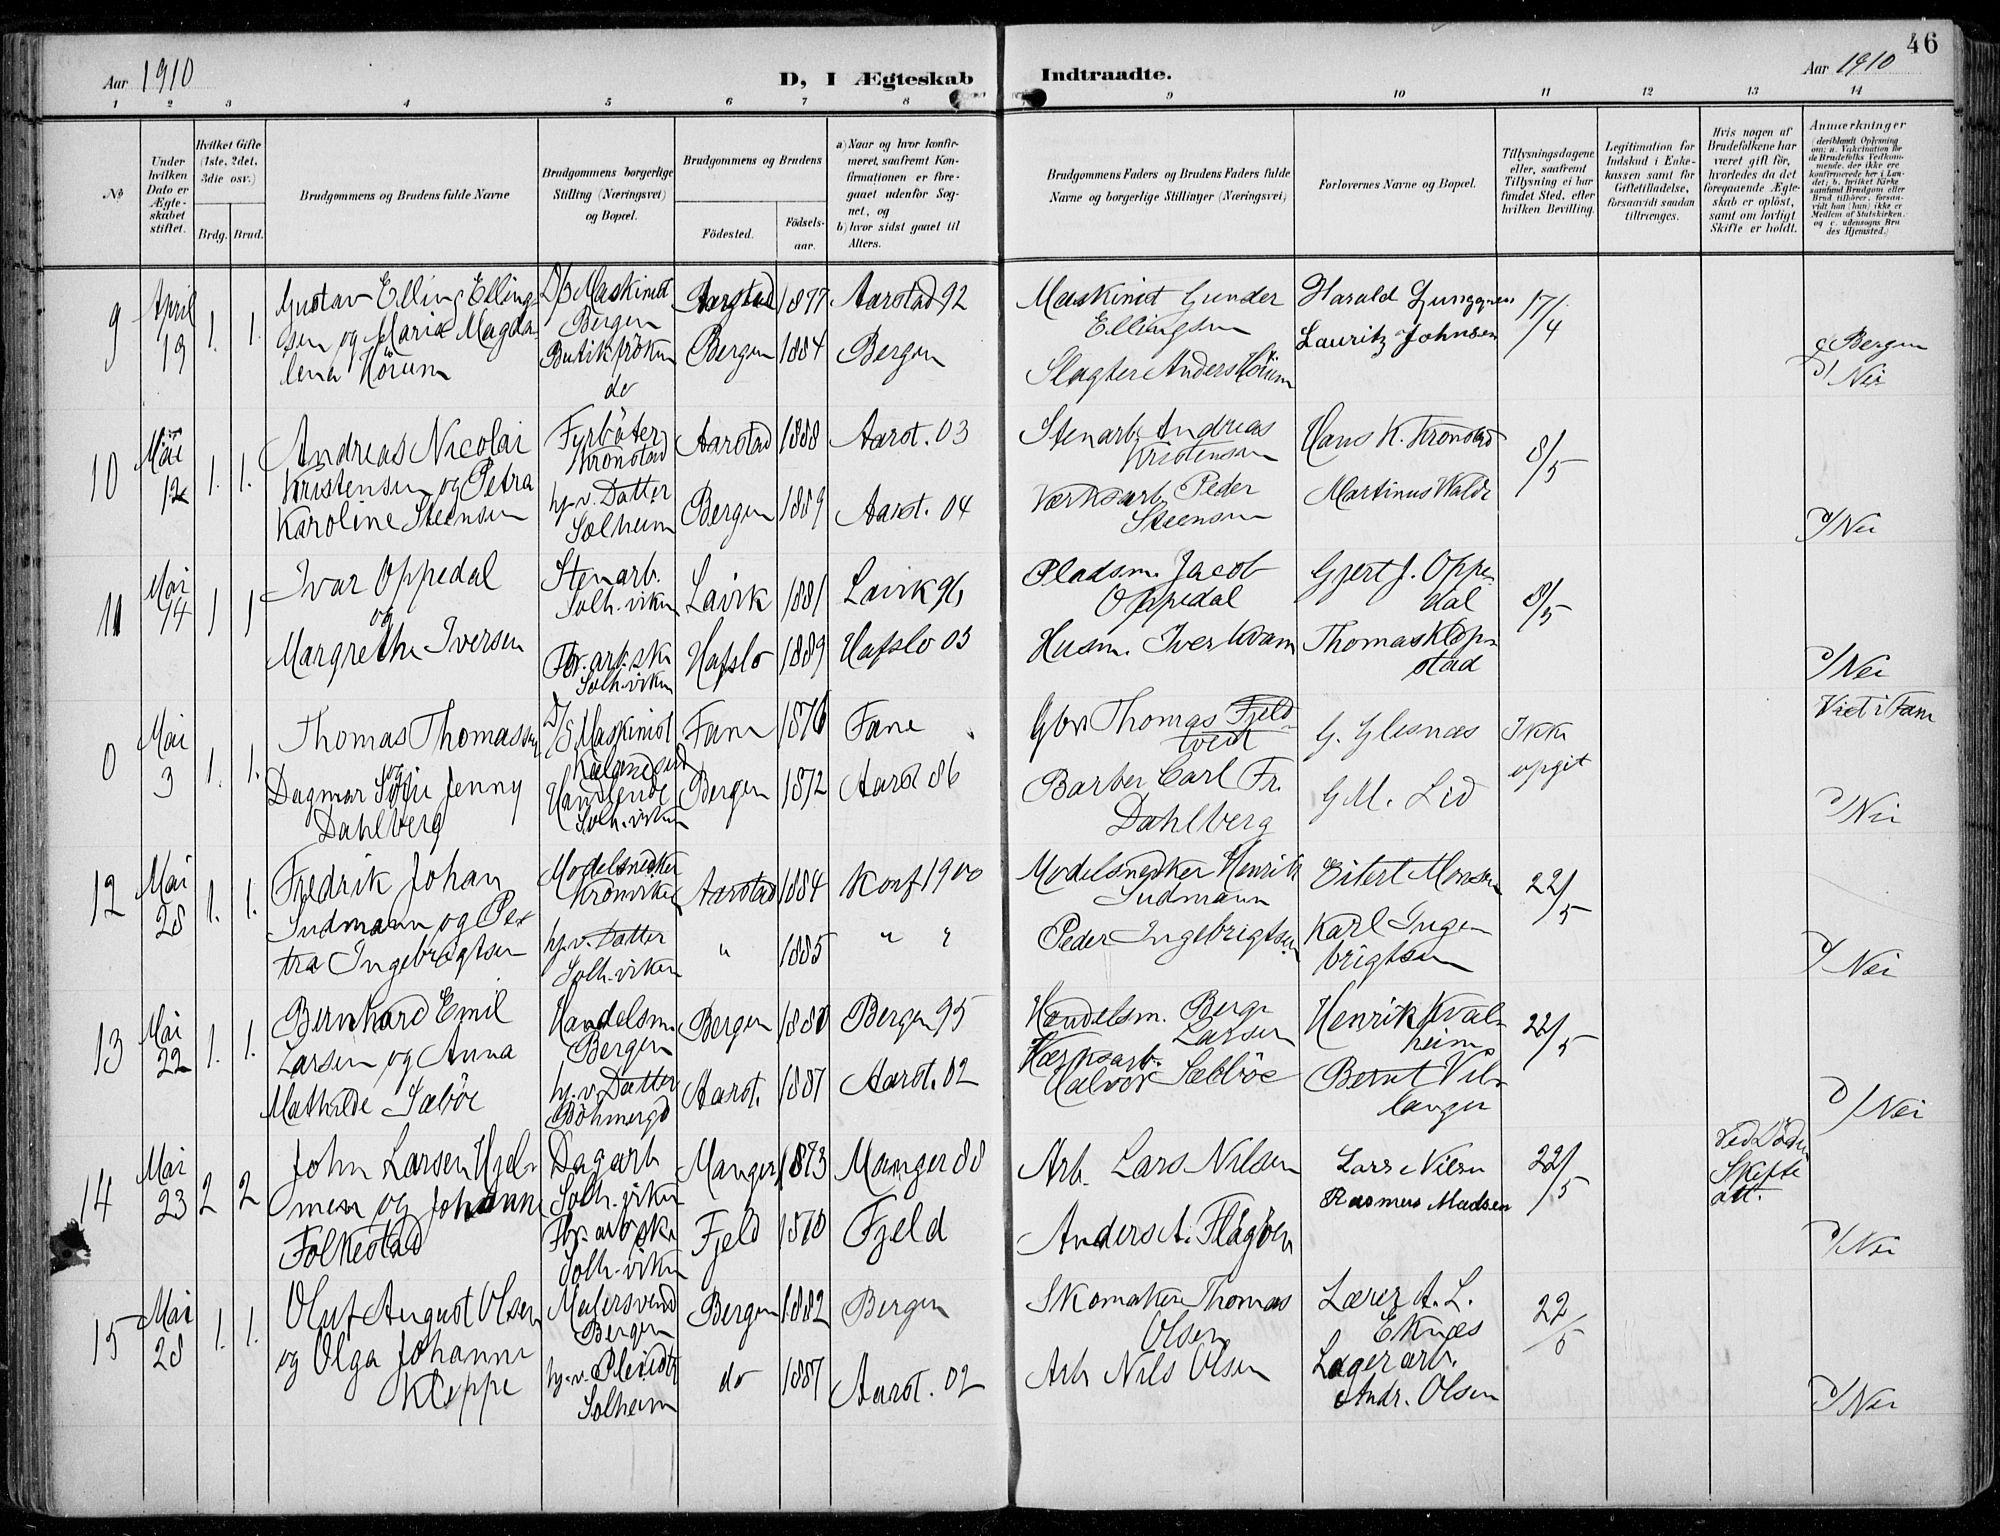 46
Aar 1910
D, I Ægteskab Indtraadte.
Aar 1910
1 2 3 4 5 6 7 8 9 10 11 12 13 14
No
Under hvilken Dato er Ægteskabet stiftet.
Hvilket Gifte (1ste, 2det, 3die osv.)
Brdg. Brud.
Brudgommens og Brudens fulde Navne
Brudgommens borgerlige Stilling (Næringsvei) og Bopæl.
Brudgommens og Brudens
Födested.
Födsels-aar.
a) Naar og hvor konfirmeret, saafremt Konfirmationen er foregaaet udenfor Sognet, og
b) hvor sidst gaaet til Alters.
Brudgommens Faders og Brudens Faders fulde Navne og borgerlige Stillinger (Næringsvei)
Forlovernes Navne og Bopæl.
Tillysningsdagene eller, saafremt Tillysning ei har fundet Sted, efter hvilken Bevilling.
Legitimation for Indskud i Enkekassen samt for Giftetilladelse, forsaavidt saadan tiltrænges.
Hvis nogen af Brudefolkene har været gift för, hvorledes da det foregaaende Ægteskab er oplöst, samt om lovligt Skifte er holdt.
Anmærkninger
(deriblandt Oplysning om: a. Vakcination for de Brudefolks Vedkommende, der ikke ere konfirmerede her i Landet; b. hvilket Kirkesamfund Brudgom eller Brud tilhörer, forsaavidt han (hun) ikke er Medlem af Statskirken, og c. udensogns Brudes Hjemsted.)
9 April 19 1. 1. Gustav Elling Ellingsen og Maria Magdalena Hörum
D/S Maskinist Bergen Aarstad 1877 Aarstad 92
Butikfröken do Bergen 1884 Bergen
Maskinist Gunder Ellingsen
Slagter Anders Hörum
Harald Ljunggren
Lauritz Johnsen
17/4
c Bergen
Nei
10 Mai 12 1. 1. Andreas Nicolai Kristensen og Petra Karoline Steensen
Fyrböter Kronstad Aarstad 1888 Aarst. 03
hj. v. Datter Solheim Bergen 1889 Aarst. 04
Stenarb. Andreas Kristensen
Værksarb. Peder Steensen
Hans K. Kronstad
Martinus Walde
8/5
Nei
11 Mai 14 1 1 Ivar Oppedal og Margrethe Iversen
Stenarb. Solh. viken Lavik 1881 Lavik 96
Fbr. arb. ske Solh. viken Hafslo 1889 Hafslo 03
Pladsm. Jacob Oppedal
Husm. Iver Kvam
Gjert J. Oppedal
Thomas Klopstad
8/5
Nei
0 Mai 3 1. 1. Thomas Thomassen og Dagmar Sofie Jenny Dahlberg
D/S Maskinist Fane 1876 Fane
Solh. viken Bergen 1872 Aarst 86
Gbr Thomas Fjeldtvedt
Barber Carl Fr. Dahlberg
G. Glesnæs
G M. Lid
Ikke opgit
Viet i Fane
Nei
12 Mai 28 1. 1. Fredrik Johan Sudmann og Petra Ingebrigtsen
Modelsnedker Kronviken Aarstad 1884 Konf 1900
hj. v. Datter Solh. viken " 1885 " "
Modelsnedker Henrik Sudmann
Peder Ingebrigtsen
Eilert Monsen
Karl Ingebrigtsen
22/5
Nei
13 Mai 22 1. 1. Bernhard Emil Larsen og Anna Mathilde Sæböe
Handelsm. Bergen Bergen 1880 Bergen 95
hj. v. Datter Böhmergd Aarst. 1887 Aarst. 02
Handelsm. Larsen
Værksarb. Halvor Sæbböe
Henrik Kvalheim
Bernt Villanger
22/5
Nei
14 Mai 23 2 2 John Larsen Hjelmen og Johanne Folkestad
Dagarb Solh. viken Manger 1873 Manger 88
Fbr. arb. ske Solh. viken Fjeld 1870 Fjeld
Arb. Lars Nilsen
Anders A. Flagöen
Lars Nilsen
Rasmus Madsen
22/5
Ved Död Skifte att.
Nei
15 Mai 28 1. 1. Oluf August Olsen og Olga Johanne Kleppe
Malersvend Bergen Bergen 1882 Bergen
Solheim do 1887 Aarst. 02
Skomaker Thomas Olsen
Arb Nils Olsen
Lærer A. L. Eknæs
Lagerarb. Andr. Olsen
22/5
Nei